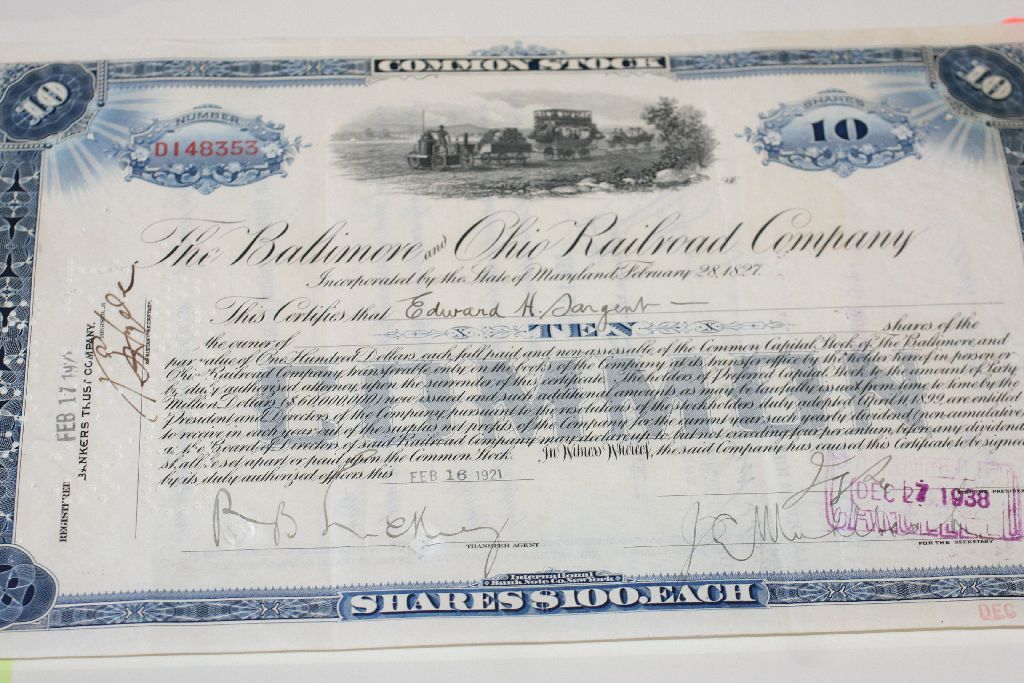 COMMON STOCK
10
10
NUMBER
D148353
SHARES
10
The Baltimore and Ohio Railroad Company
Incorporated by the State of Maryland, February 28, 1827.
This Certifies that Edward H. Sargent
the owner of TEN shares of the
par value of One Hundred Dollars each full paid and non-assessable of the Common Capital Stock of the Baltimore and
Ohio Railroad Company, transferable only on the books of the Company in person or
by duly authorized attorney upon the surrender of this certificate. The holders of Preferred Capital Stock to the amount of Sixty
Million Dollars ($60,000,000) now issued and such additional amounts as may be lawfully issued from time to time by the
President and Directors of the Company, pursuant to the resolution of the stockholders duly adopted April 11, 1899, are entitled
to receive in each year out of the surplus net profits of the Company for the current year such yearly dividend (non-cumulative)
as the Board of Directors of said Railroad Company may declare up to but not exceeding four per centum, before any dividend
shall be set apart or paid upon the Common Stock. In Witness Whereof, the said Company has caused this Certificate to be signed
by its duly authorized officers this FEB 16 1921
COMMON
REGISTERED
FEB 17
BANKERS TRUST COMPANY,
DEC 27 1938
TRANSFER AGENT
FOR THE SECRETARY
International
Bank Note Co. New York
SHARES $100. EACH
DEC